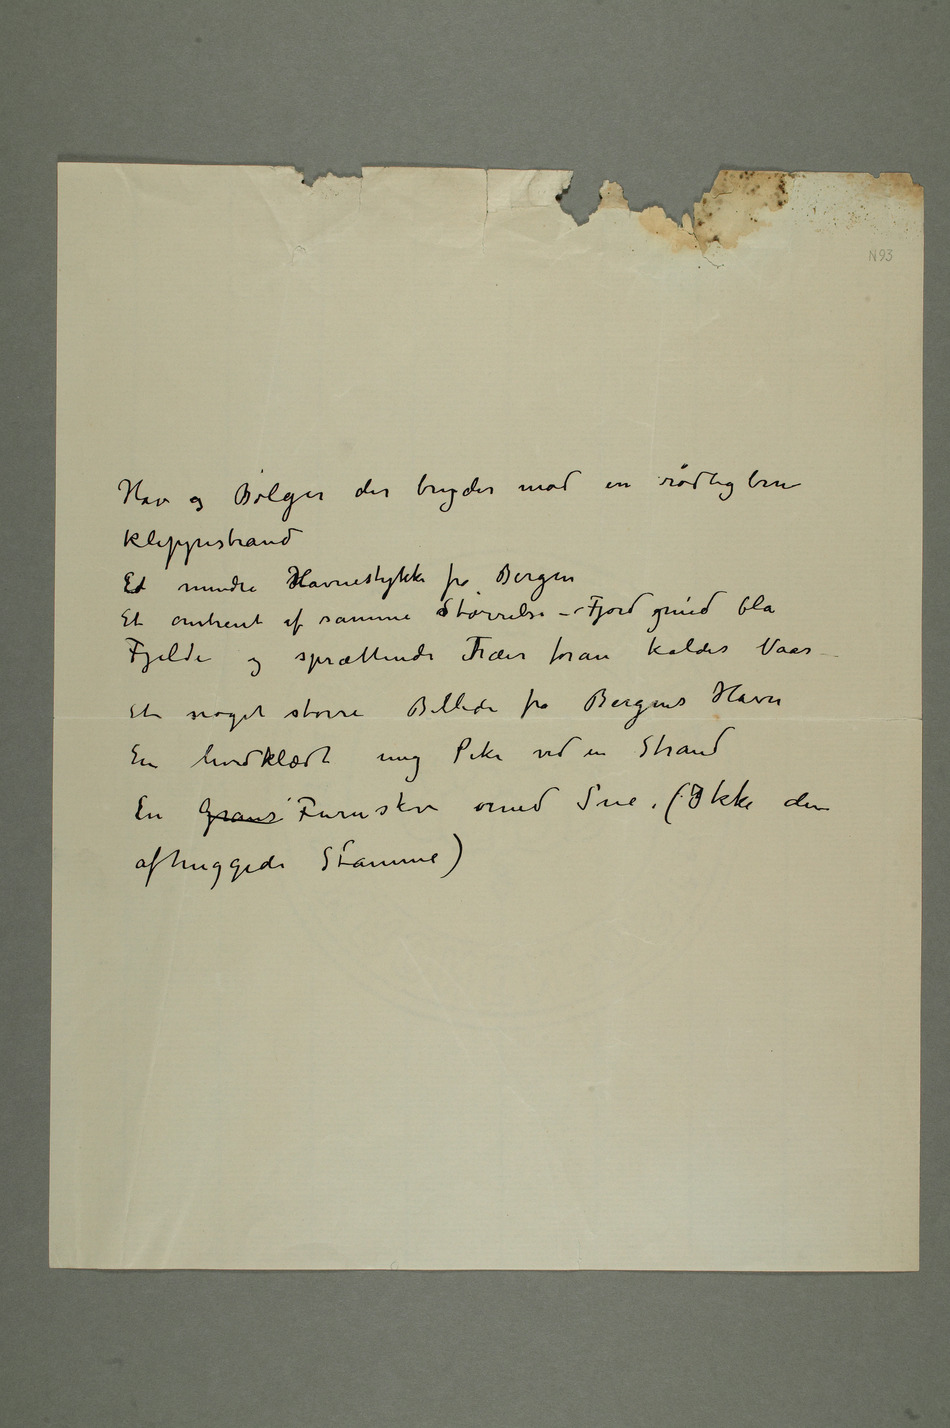 N93
Hav og Bølger der bryder mod en rødlig brun
klippestrand
Et mindre Havnestykke fra Bergen
Et omtrent af samme Størrelse – Fjord med blå
Fjelde og sprættende Træer foran kaldes Vaar
Et noget større Billede fra Bergens Havn
En hvidklædt ung Pike ved en Strand
En Grans Furuskov med Sne. (Ikke den
afhuggede Stamme)